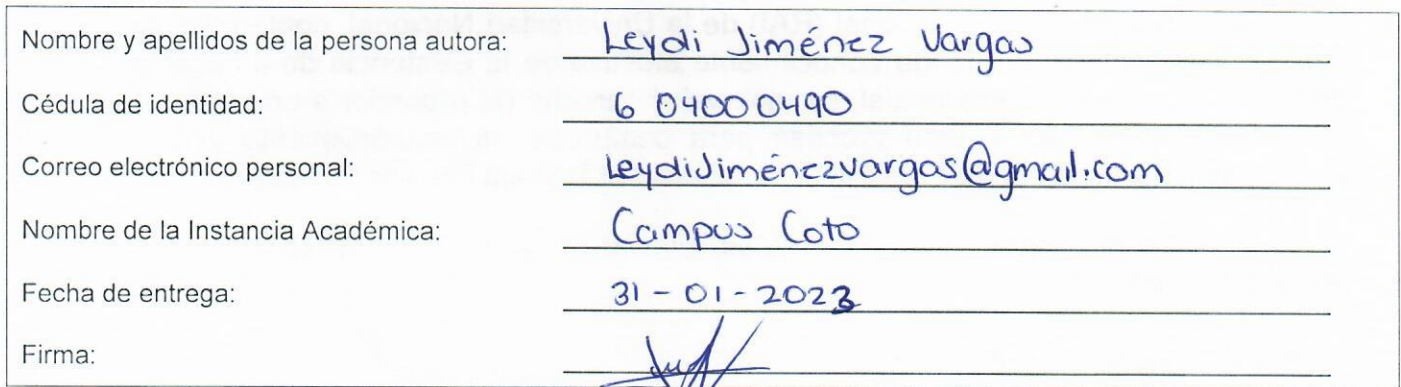 Nombre y apellidos de la persona autora: Leydi Jiménez Vargas
Cédula de identidad: 6 0400 0490
Correo electrónico personal: LeydiJiménezvargas@gmail.com
Nombre de la Instancia Académica: Campus Coto
Fecha de entrega: 31-01-2023
Firma: